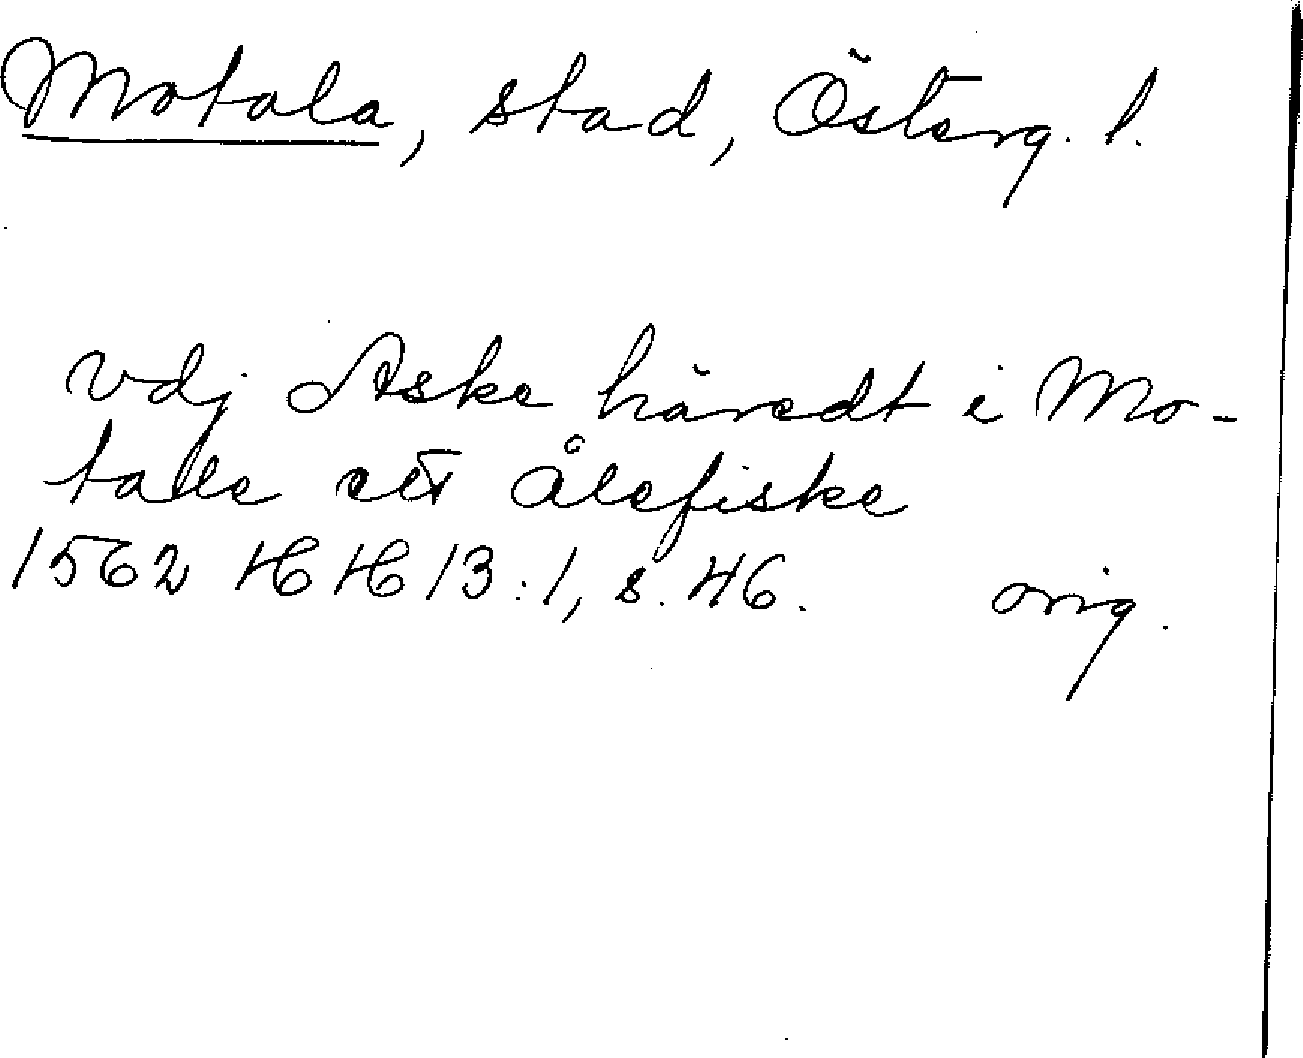 Motala, stad, Österg. l.
vdj Aske häredt i Mo-
talle ett ålefiske
1562 HH 13:1, s. 46. orig.